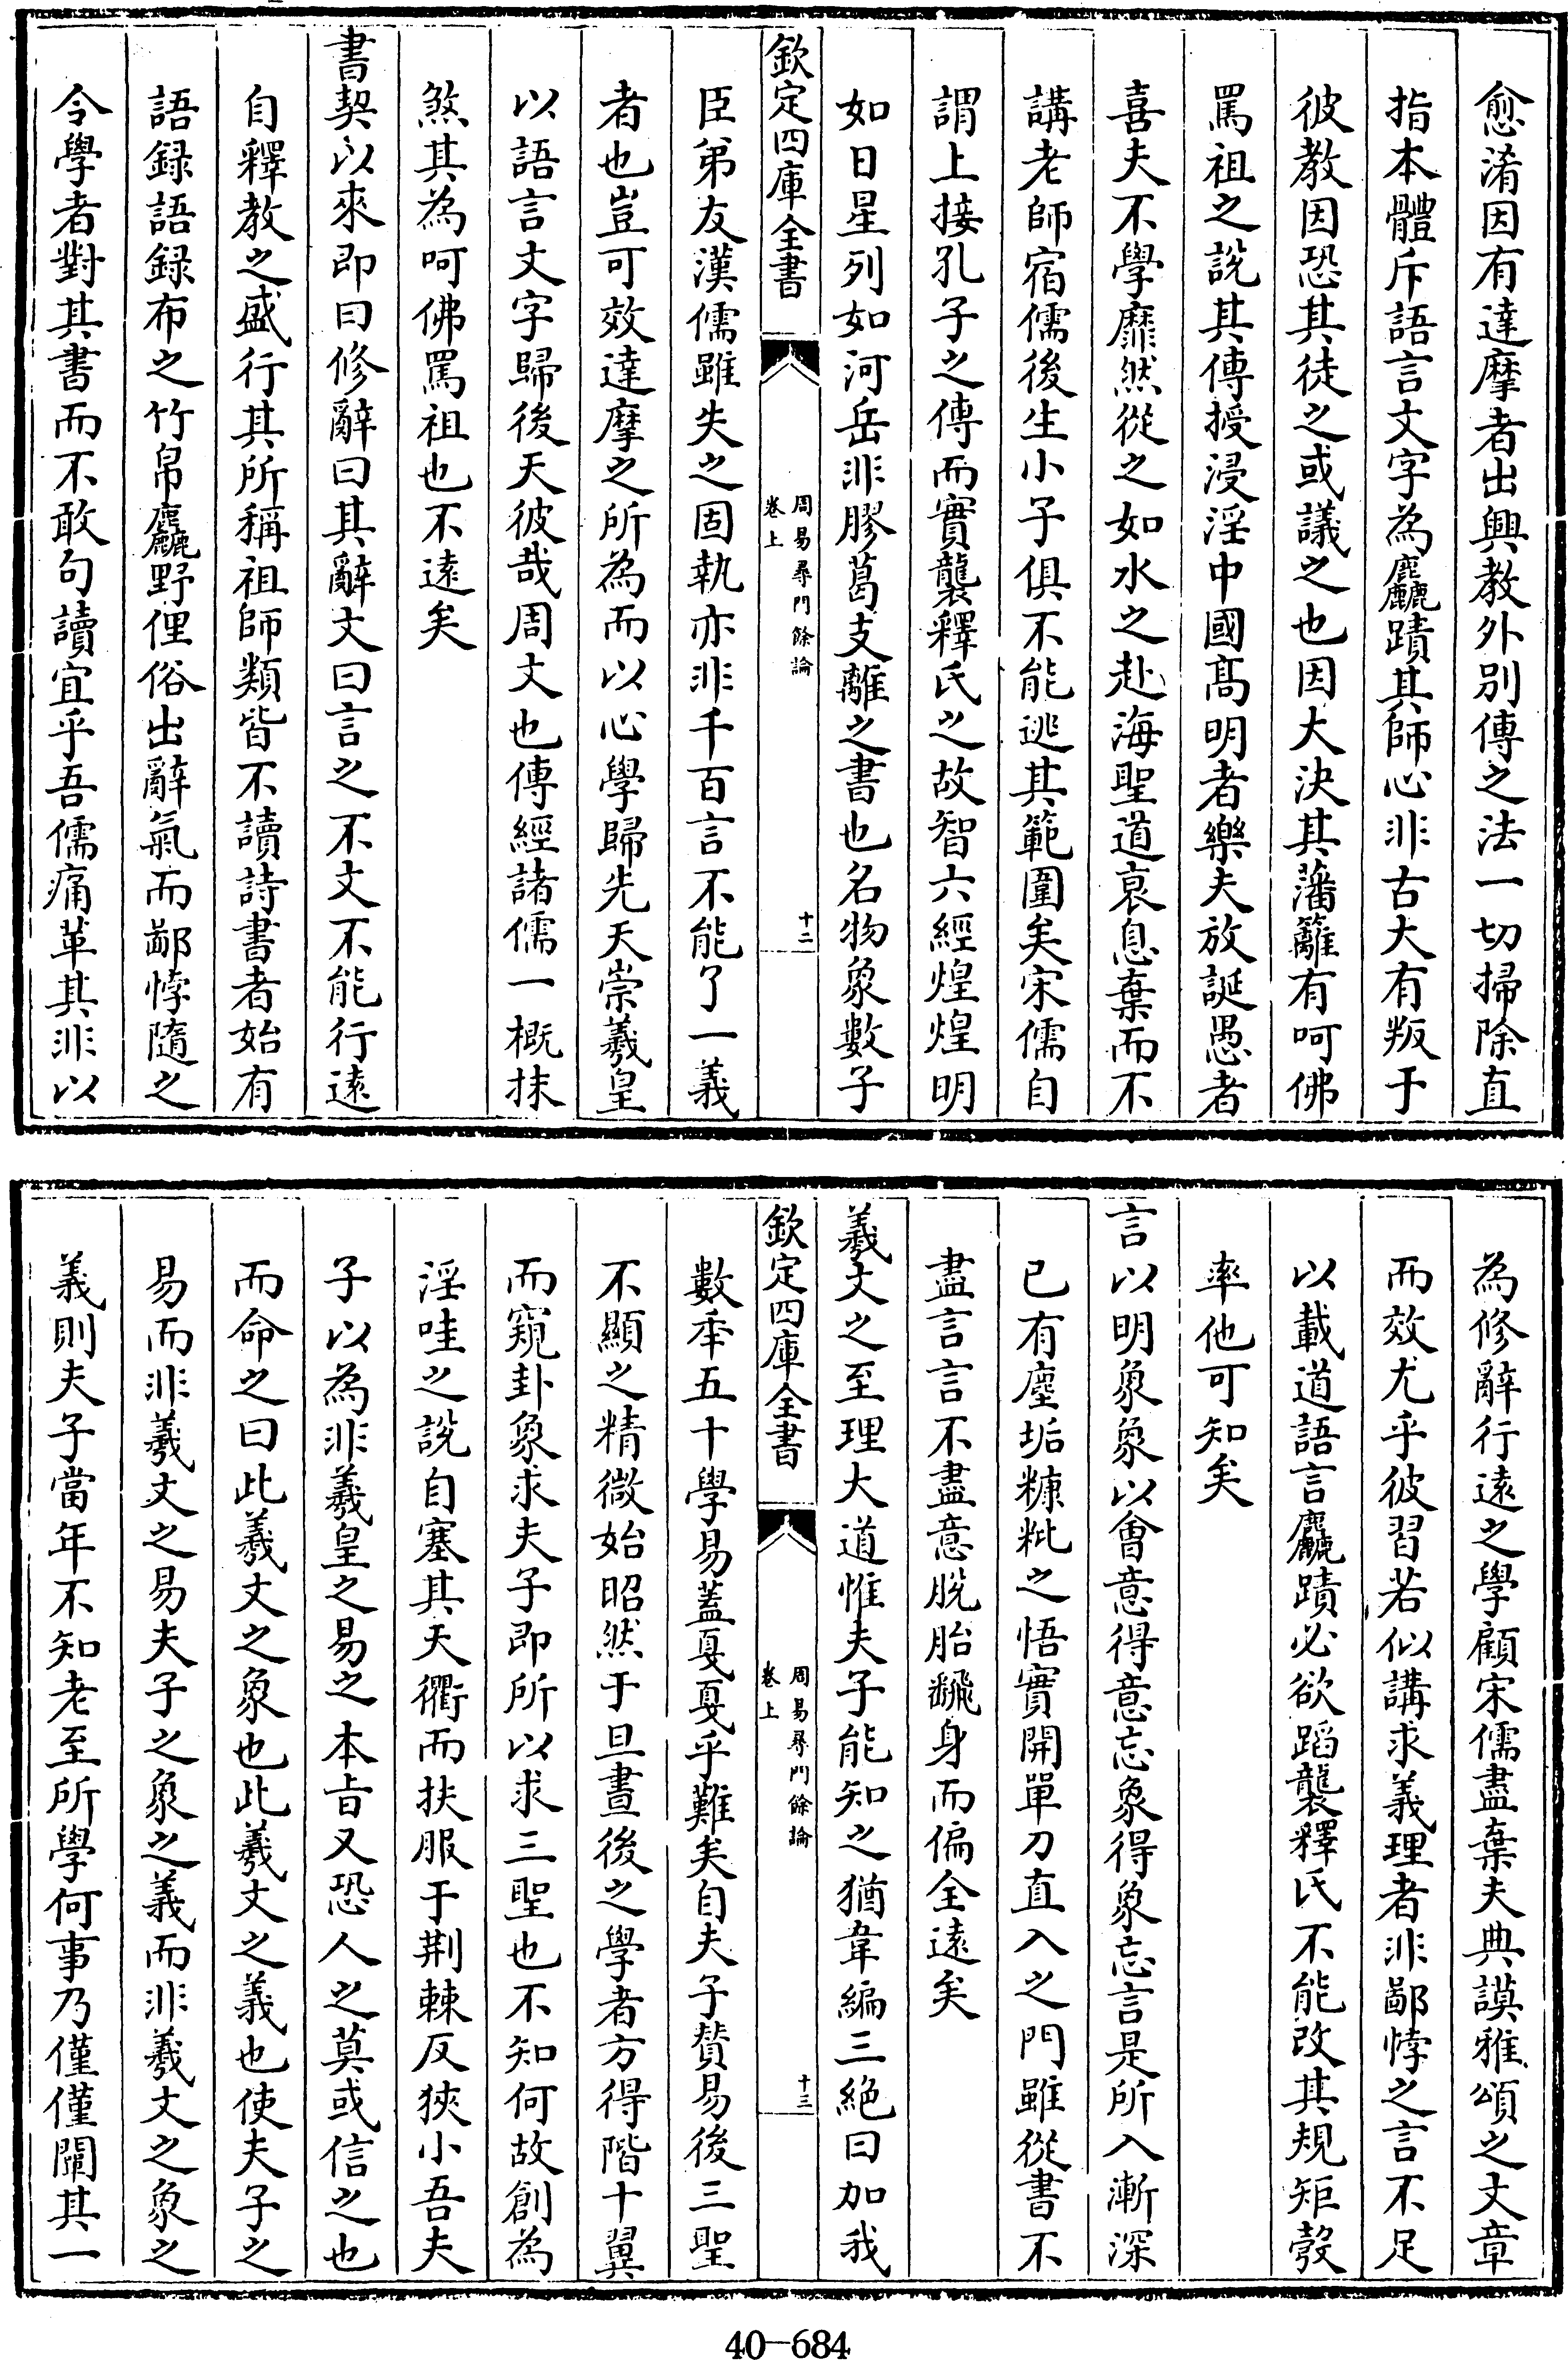 愈淆因有達摩者出興教外別傳之法一切掃除直
指本體斥語言文字為麤蹟其師心非古大有叛于
彼教因恐其徒之或議之也因大決其藩籬有呵佛
罵祖之說其傳授浸淫中國髙明者樂夫放誕愚者
喜夫不學靡然從之如水之赴海聖道衰息棄而不
講老師宿儒後生小子俱不能逃其範圍矣宋儒自
謂上接孔子之傳而實襲釋氏之故智六經煌煌明
如日星列如河岳非膠葛支離之書也名物象數子
欽定四庫全書
周易尋門餘論
卷上
十二
臣弟友漢儒雖失之固執亦非千百言不能了一義
者也豈可效達摩之所為而以心學歸先天崇羲皇
以語言文字歸後天彼哉周文也傳經諸儒一概抹
煞其為呵佛罵祖也不遠矣
書契以來即曰修辭曰其辭文曰言之不文不能行遠
自釋教之盛行其所稱祖師類皆不讀詩書者始有
語録語録布之竹帛麤野俚俗出辭氣而鄙悖隨之
令學者對其書而不敢句讀宜乎吾儒痛革其非以
為修辭行遠之學顧宋儒盡棄夫典謨雅頌之文章
而效尤乎彼習若似講求義理者非鄙悖之言不足
以載道語言麤蹟必欲蹈襲釋氏不能改其規矩彀
率他可知矣
言以明象象以會意得意忘象得象忘言是所入漸深
已有塵垢糠粃之悟實開單刀直入之門雖從書不
盡言言不盡意脫胎飜身而偏全遠矣
羲文之至理大道惟夫子能知之猶韋編三絶曰加我
欽定四庫全書
周易尋門餘論
卷上
十三
數年五十學易蓋戛戛乎難矣自夫子賛易後三聖
不顯之精微始昭然于旦晝後之學者方得階十翼
而窺卦象求夫子即所以求三聖也不知何故創為
淫哇之說自塞其天衢而扶服于荆棘反狹小吾夫
子以為非羲皇之易之本旨又恐人之莫或信之也
而命之曰此羲文之象也此羲文之義也使夫子之
易而非羲文之易夫子之象之義而非羲文之象之
義則夫子當年不知老至所學何事乃僅僅闡其一
40-684